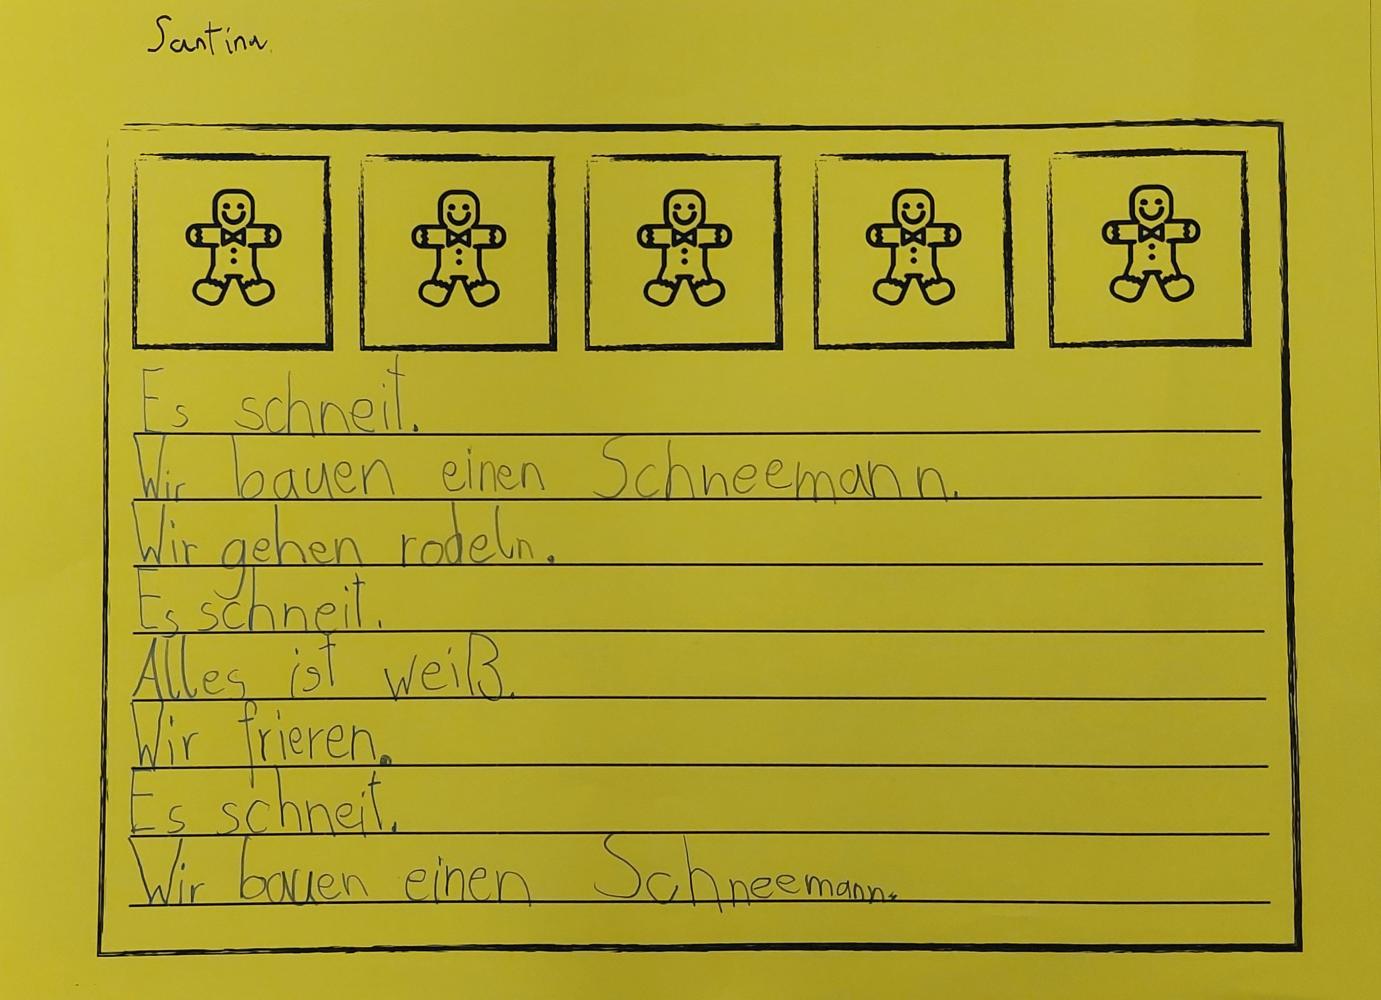 Santina
Es schneit.
Wir bauen einen Schneemann.
Wir gehen rodeln.
Es schneit.
Alles ist weiß.
Wir frieren.
Es schneit.
Wir bauen einen Schneemann.